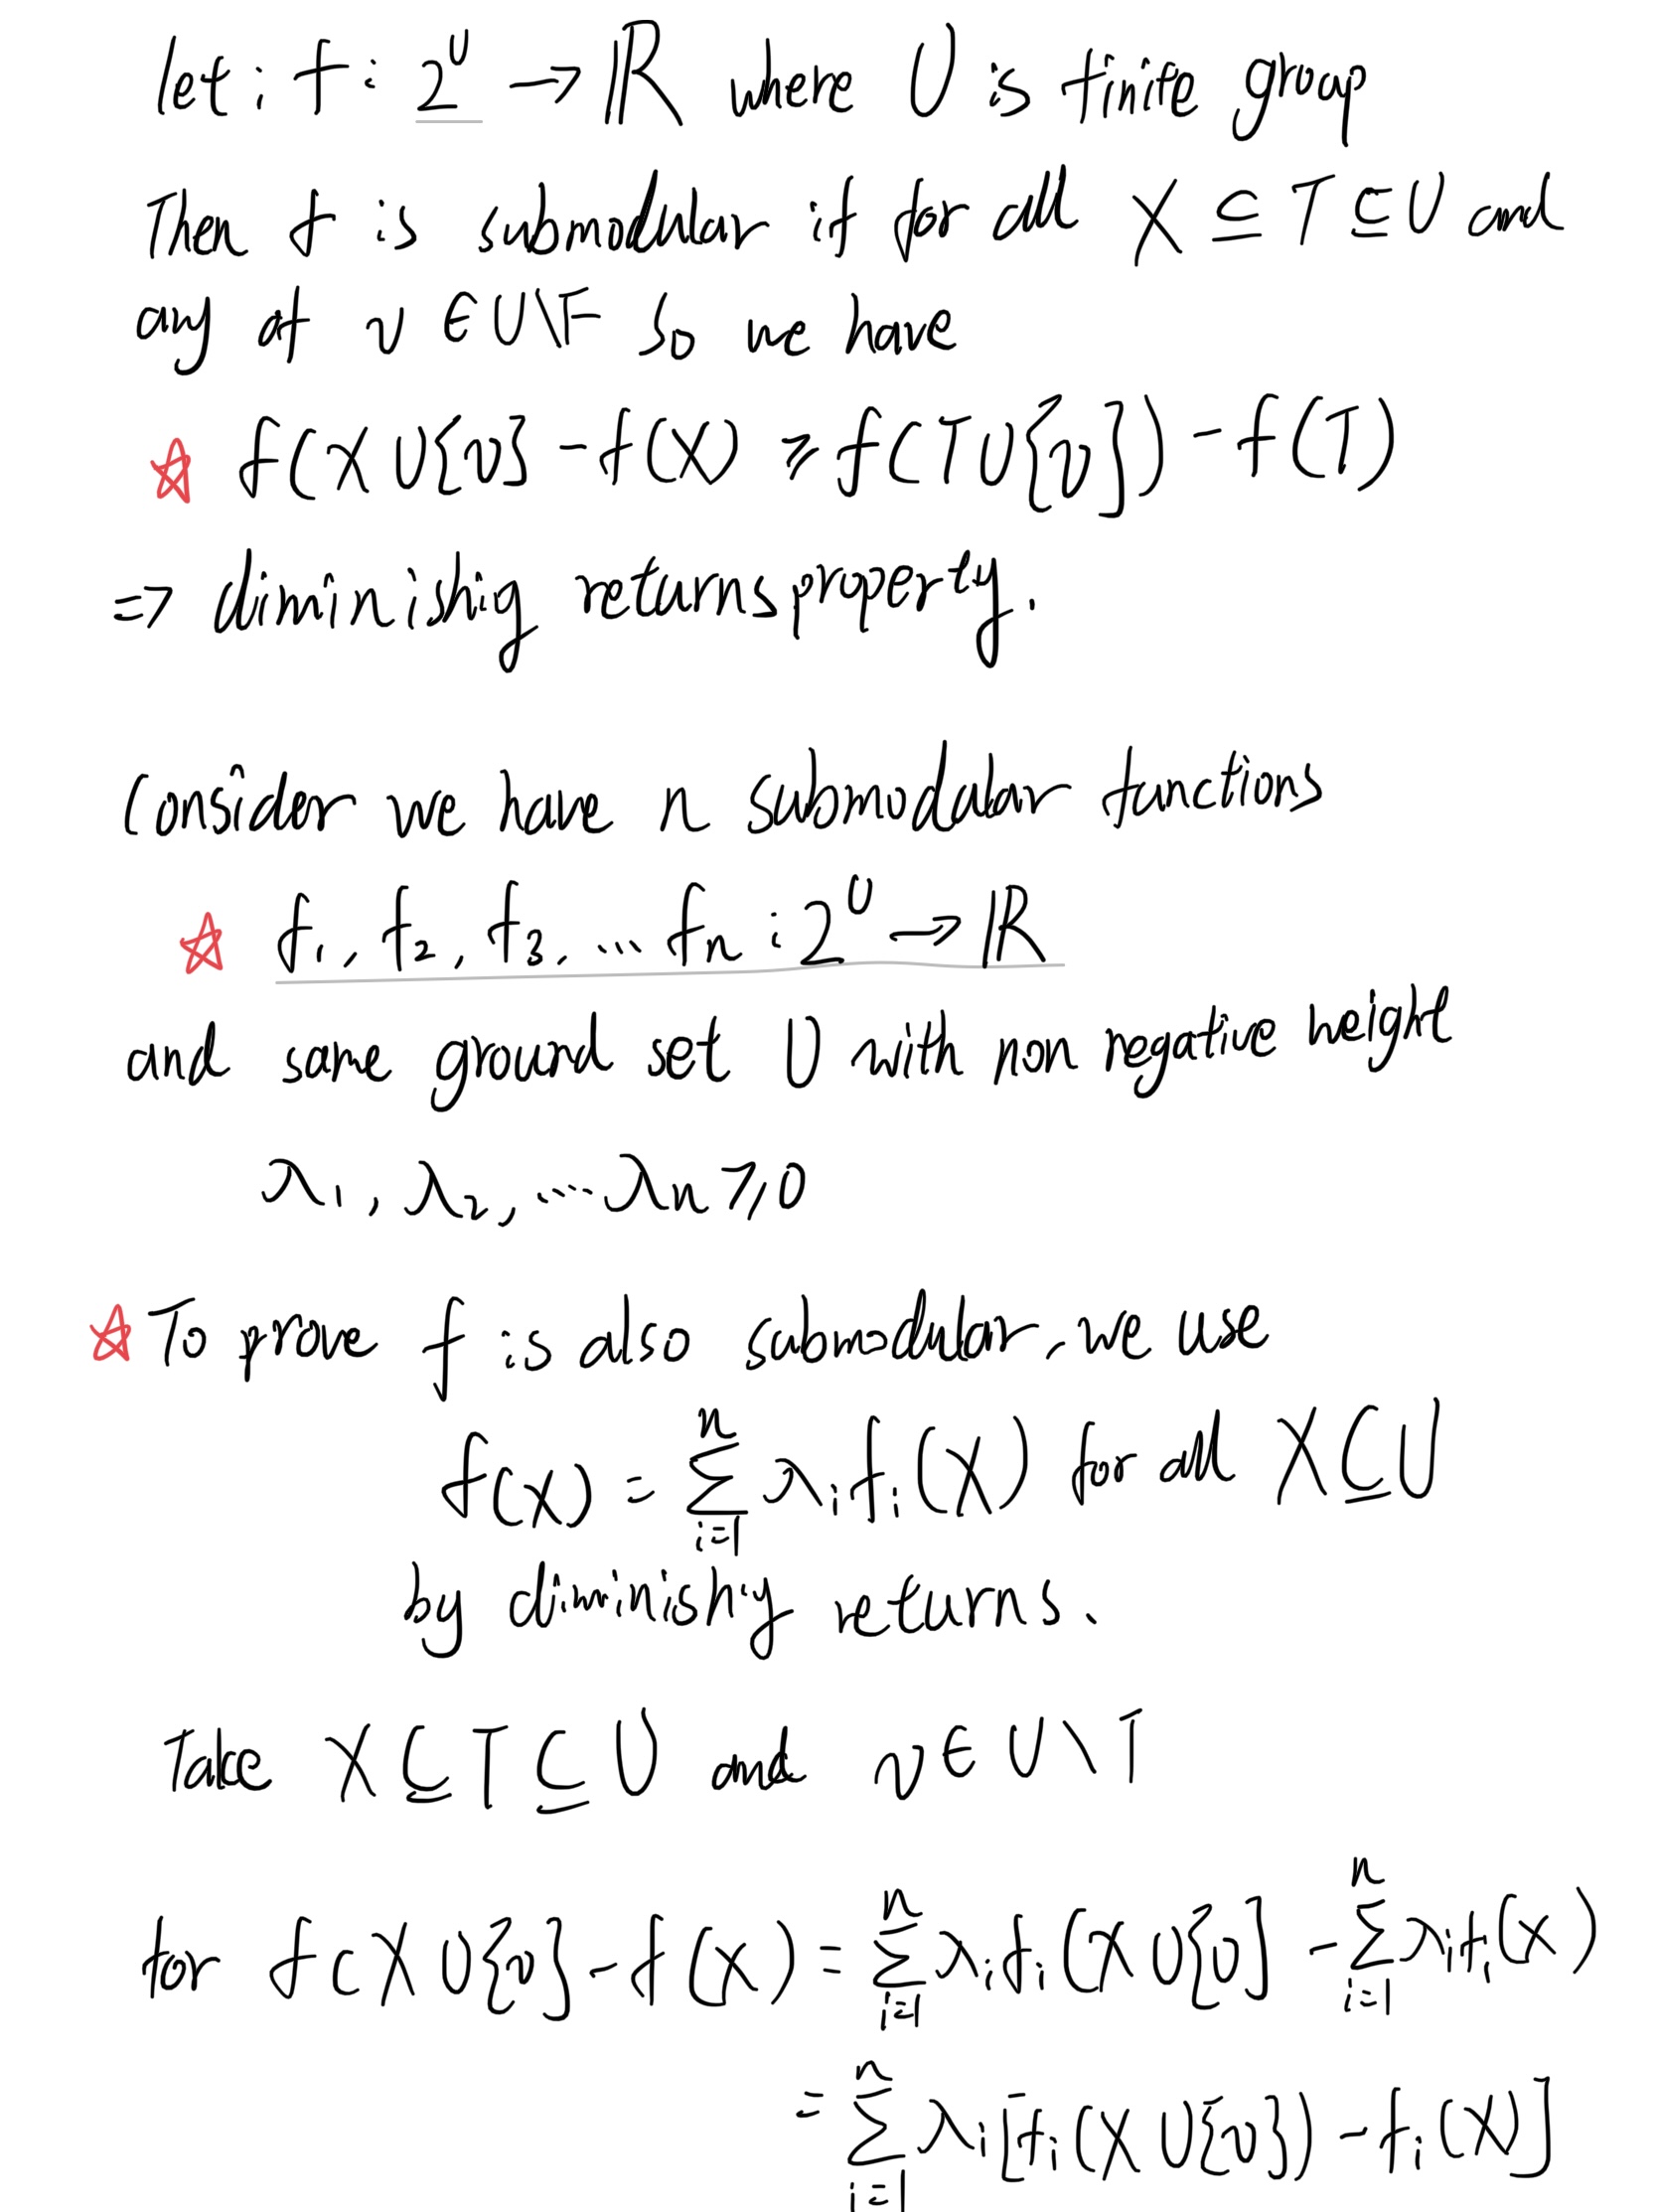 let: f: 2^U → ℝ where U is finite group
Then f is submodular if for all X ⊆ T ⊆ U and
any of v ∈ U\F so we have
☆ f(X ∪{v} - f(X) ≥ f(T∪{v}) - f(T)
=> diminishig returns property.
Consider we have n submodular functions
☆ f₁, f₂, f₃, ... fₙ : 2^U → ℝ
and same ground set U with non negative height
λ₁, λ₂, ... λₙ ≥ 0
☆ To prove f is also submodular, we use
f(X) = ∑_{i=1}^{n} λᵢfᵢ(X) for all X ⊆ U
by diminishy returns.
Take X ⊆ T ⊆ U and v ∈ U \ T
for f(X∪{v} - f(X) = ∑_{i=1}^{n} λᵢfᵢ(X∪{v} - ∑_{i=1}^{n} λᵢfᵢ(X)
= ∑_{i=1}^{n} λᵢ[fᵢ(X∪{v}) - fᵢ(X)]